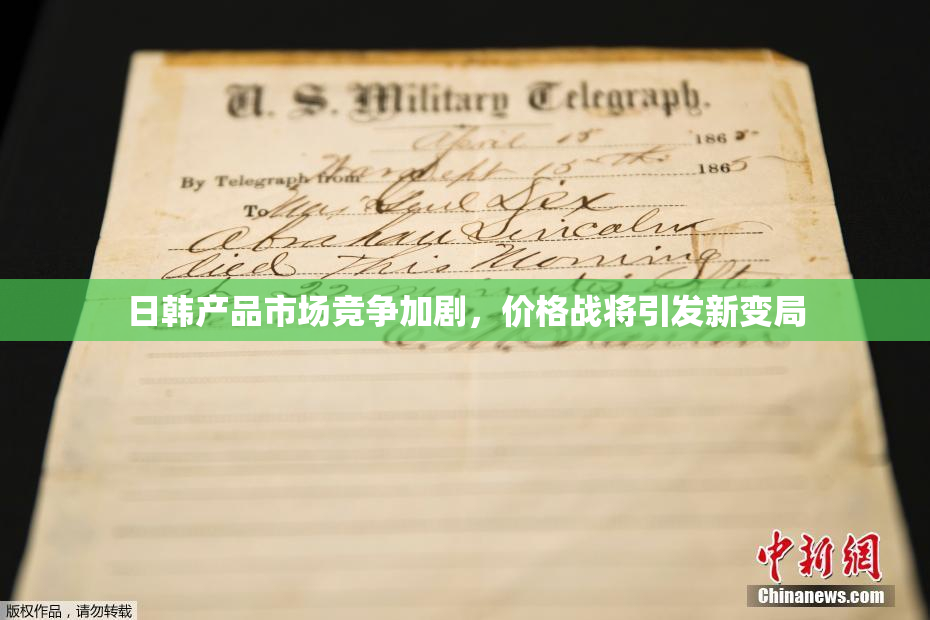 U. S. Military Telegraph.
April 15 1865
By Telegraph from War Dept 15th 1865
To Maj Genl Dix
Abraham Lincoln
died this morning
at 22 minutes after
日韩产品市场竞争加剧，价格战将引发新变局
E. M. Stanton
中新网
Chinanews.com
版权作品，请勿转载